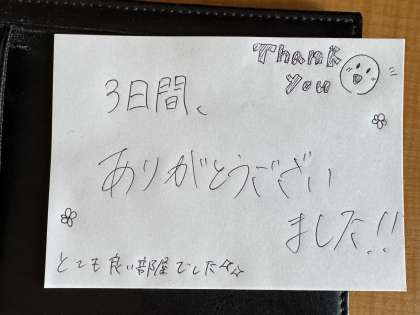 Thank
You
3日間、
ありがとうござい
ました!!
とても良い部屋でした☆☆